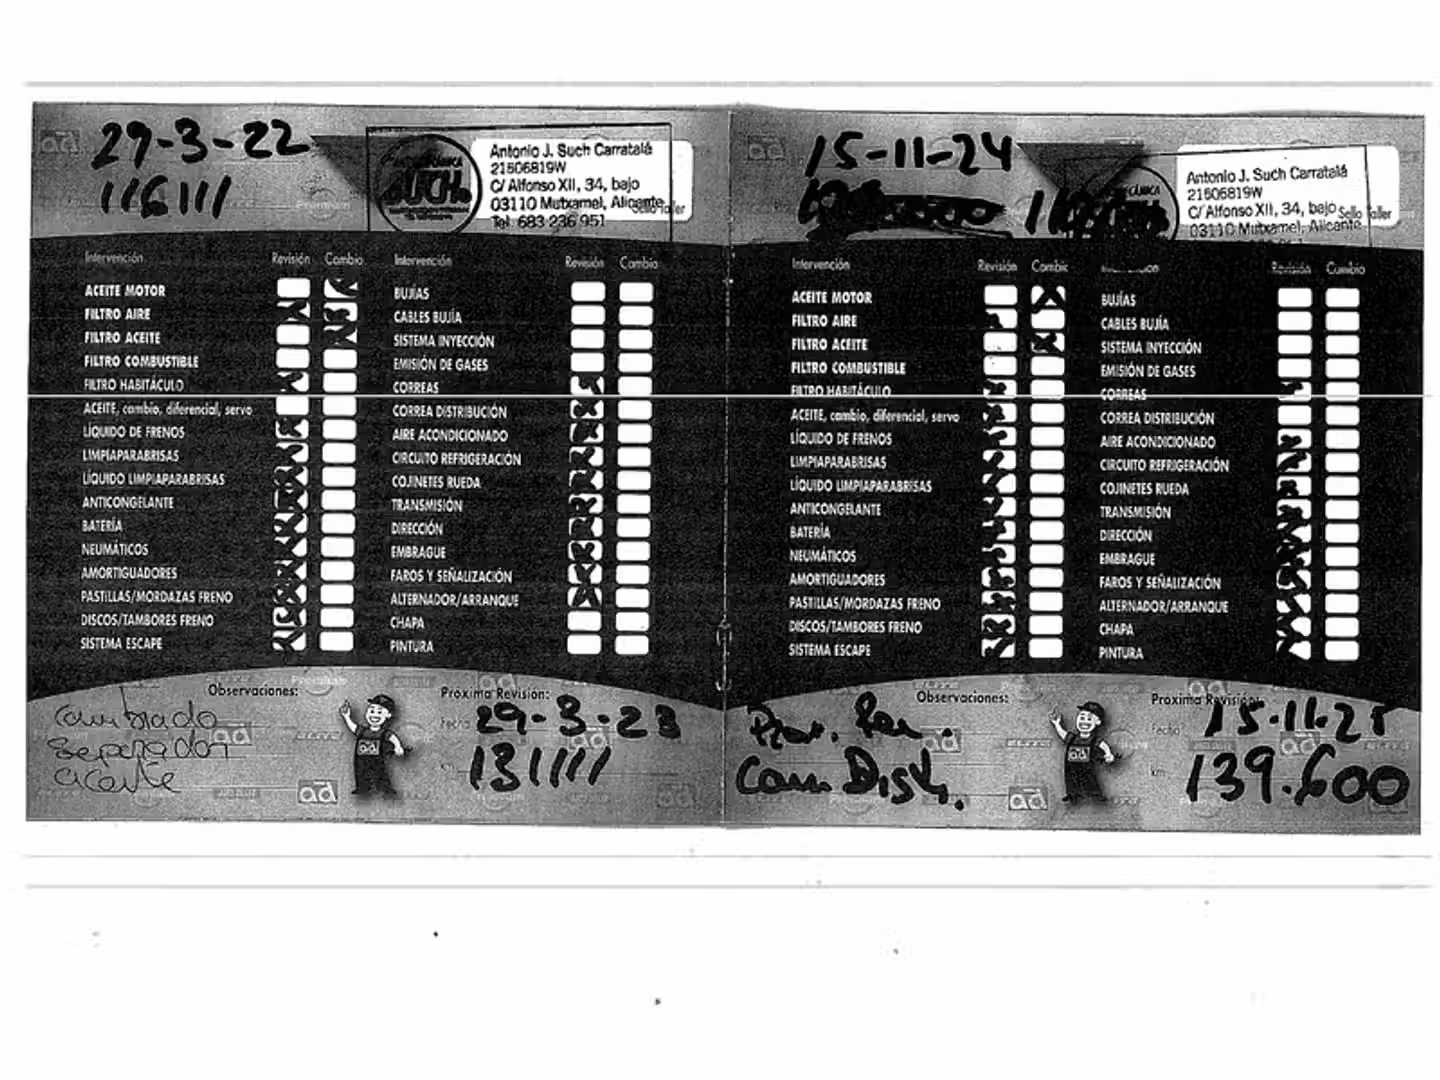 29-3-22
116111
Antonio J. Such Carratalá
21506819W
C/ Alfonso XII, 34, bajo
03110 Mutxamel, Alicante
Sello Taller
Tel. 683 236 951
Intervención Revisión Cambio
ACEITE MOTOR
FILTRO AIRE
FILTRO ACEITE
FILTRO COMBUSTIBLE
FILTRO HABITÁCULO
ACEITE, cambio, diferencial, servo
LÍQUIDO DE FRENOS
LIMPIAPARABRISAS
LÍQUIDO LIMPIAPARABRISAS
ANTICONGELANTE
BATERÍA
NEUMÁTICOS
AMORTIGUADORES
PASTILLAS/MORDAZAS FRENO
DISCOS/TAMBORES FRENO
SISTEMA ESCAPE
Intervención Revisión Cambio
BUJÍAS
CABLES BUJÍA
SISTEMA INYECCIÓN
EMISIÓN DE GASES
CORREAS
CORREA DISTRIBUCIÓN
AIRE ACONDICIONADO
CIRCUITO REFRIGERACIÓN
COJINETES RUEDA
TRANSMISIÓN
DIRECCIÓN
EMBRAGUE
FAROS Y SEÑALIZACIÓN
ALTERNADOR/ARRANQUE
CHAPA
PINTURA
Observaciones:
Cambiado
Separador
aceite
ad
Próxima Revisión:
Fecha 29-3-23
km 131111
15-11-24
Antonio J. Such Carratalá
21506819W
C/ Alfonso XII, 34, bajo
Sello Taller
03110 Mutxamel, Alicante
Intervención Revisión Cambio
ACEITE MOTOR
FILTRO AIRE
FILTRO ACEITE
FILTRO COMBUSTIBLE
FILTRO HABITÁCULO
ACEITE, cambio, diferencial, servo
LÍQUIDO DE FRENOS
LIMPIAPARABRISAS
LÍQUIDO LIMPIAPARABRISAS
ANTICONGELANTE
BATERÍA
NEUMÁTICOS
AMORTIGUADORES
PASTILLAS/MORDAZAS FRENO
DISCOS/TAMBORES FRENO
SISTEMA ESCAPE
Intervención Revisión Cambio
BUJÍAS
CABLES BUJÍA
SISTEMA INYECCIÓN
EMISIÓN DE GASES
CORREAS
CORREA DISTRIBUCIÓN
AIRE ACONDICIONADO
CIRCUITO REFRIGERACIÓN
COJINETES RUEDA
TRANSMISIÓN
DIRECCIÓN
EMBRAGUE
FAROS Y SEÑALIZACIÓN
ALTERNADOR/ARRANQUE
CHAPA
PINTURA
Observaciones:
Cam Dist.
ad
Próxima Revisión:
Fecha 15-11-25
km 139.600